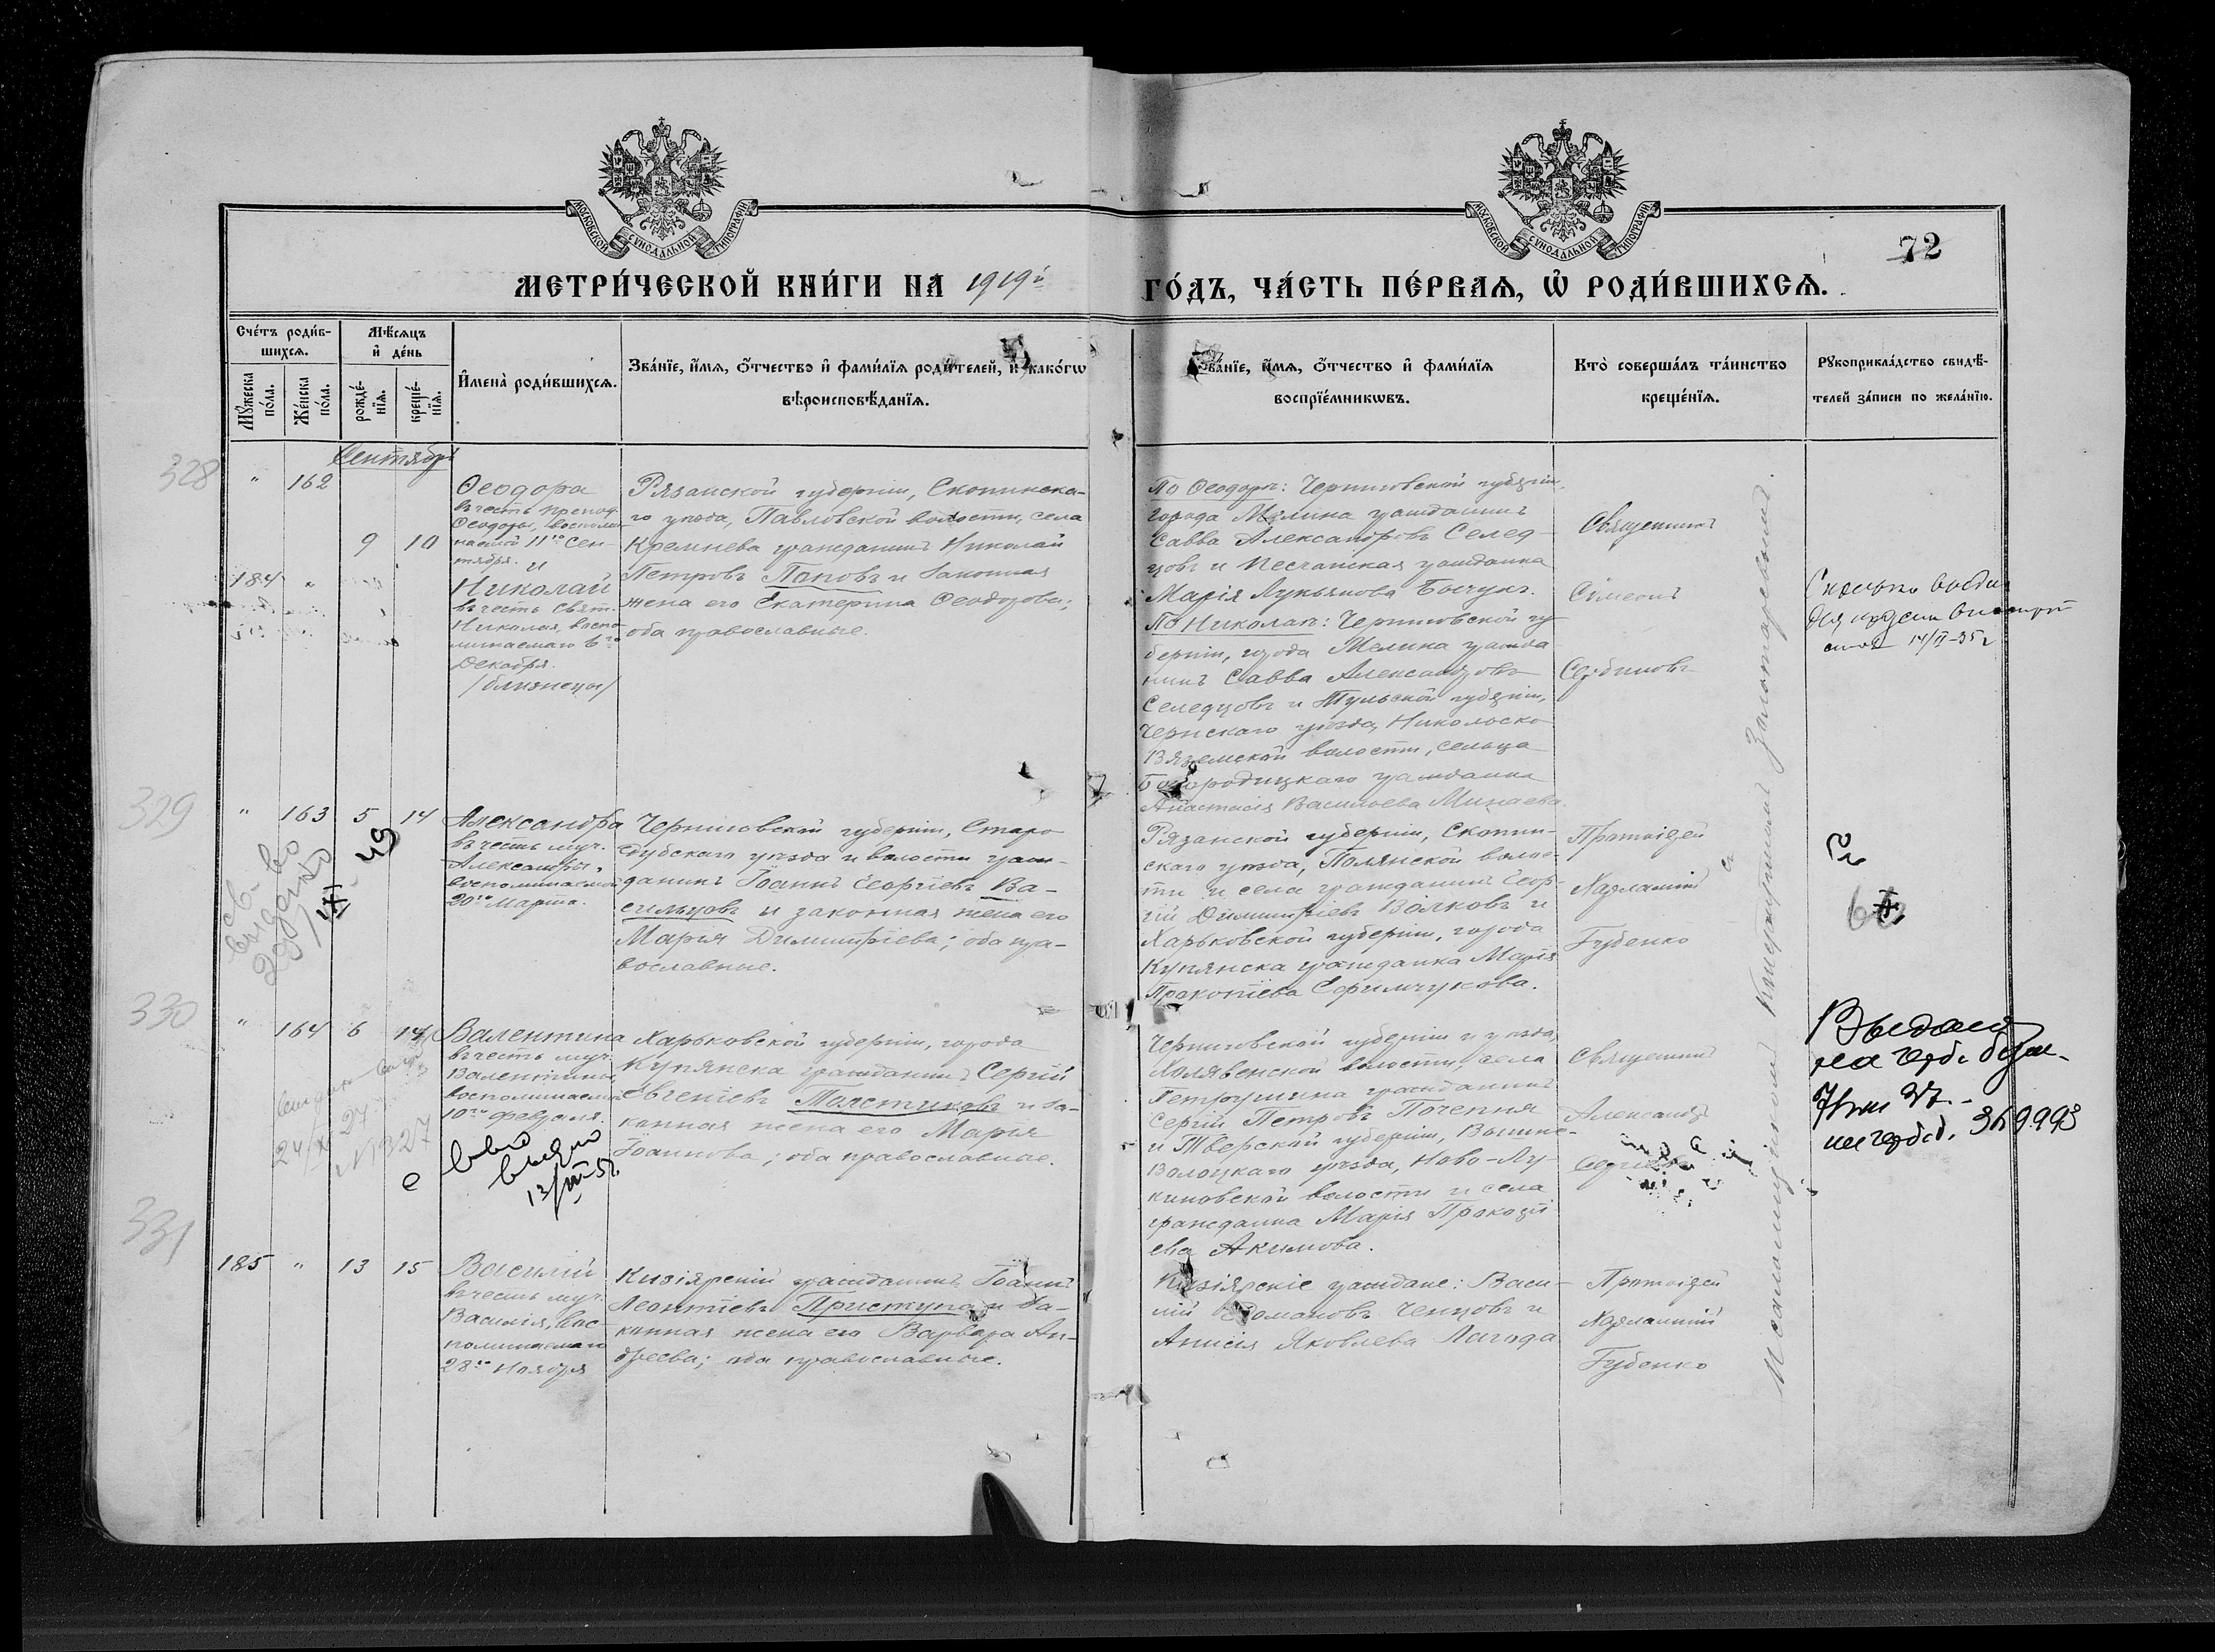 МОСКОВСКОЙ СУНОДАЛЬНОЙ ТИПОГРАФІИ
МОСКОВСКОЙ СУНОДАЛЬНОЙ ТИПОГРАФІИ
72
МЕТРИ́ЧЕСКОЙ КНИ́ГИ НА 1919й
ГО́ДЪ, ЧА́СТЬ ПЕ́РВАѦ, Ѡ҆ РОДИ́ВШИХСѦ.
Сче́тъ роди́в-
шихсѧ.
Мꙋ́жеска
по́ла.
Же́нска
по́ла.
Мѣ́сѧцъ
и҆ де́нь
рожде́-
нїѧ.
креще́-
нїѧ.
И҆мена̀ роди́вшихсѧ.
Зва́нїе, и҆́мѧ, ѻ҆́тчество и҆ фами́лїѧ роди́телей, и҆ како́гѡ
вѣроисповѣ́данїѧ.
Зва́нїе, и҆́мѧ, ѻ҆́тчество и҆ фами́лїѧ
воспрїе́мникѡвъ.
Кто̀ соверша́лъ та́инство
креще́нїѧ.
Рꙋкоприкла́дство свидѣ́-
телей за́писи по жела́нїю.
Сентябрь
328
" 162
9 10
184 "
Ѳеодора
въ честь препод.
Ѳеодоры, воспоми-
наемой 11го Сен-
тября. и
Николай
въ честь свят.
Николая, воспо-
минаемаго 6го
Декабря.
/близнецы/
Рязанской губерніи, Скопинска-
го уѣзда, Павловской волости, села
Кремнева гражданинъ Николай
Петровъ Поповъ и законная
жена его Екатерина Ѳеодорова;
оба православные.
По Ѳеодорѣ: Черниговской губерніи,
города Мглина гражданинъ
Савва Александровъ Селед-
цовъ и Песчанская гражданка
Марія Лукьянова Бочунъ.
По Николаѣ: Черниговской гу-
берніи, города Мглина гражда
нинъ Савва Александровъ
Селедцовъ и Тульской губерніи,
Чернскаго уѣзда, Никольско
Вяземской волости, сельца
Богородицкаго гражданка
Анастасія Васильева Минаева.
Священникъ
Сѵмеонъ
Сербиновъ
14/II-35 г
329
" 163 5 14
Александра
въ честь муч.
Александры,
воспоминаемой
20го Марта.
Черниговской губерніи, Старо
дубскаго уѣзда и волости граж-
данинъ Іоаннъ Георгіевъ Ва-
сильцовъ и законная жена его
Марія Димитріева; оба пра-
вославные.
Рязанской губерніи, Скопин-
скаго уѣзда, Полянской волос-
ти и села гражданинъ Геор-
гій Димитріевъ Волковъ и
Харьковской губерніи, города
Купянска гражданка Марія
Прокопіева Ефимчукова.
Протоіерей
Харлампій
Губенко
330
" 164 6 14
Валентина
въ честь муч.
Валентины,
воспоминаемой
10го Февраля.
Харьковской губерніи, города
Купянска гражданинъ Сергій
Евгеніевъ Толстиковъ и за-
конная жена его Марія
Іоаннова; оба православные.
Черниговской губерніи и уѣзда,
Холявенской волости, села
Петрушина гражданинъ
Сергій Петровъ Почепня
и Тверской губерніи, Вышне-
Волоцкаго уѣзда, Ново-Лу-
киновской волости и села
гражданка Марія Прокопі
ева Акимова.
Священникъ
Александръ
Сергіевъ
N 1327
369993
331
185 " 13 15
Василій
въ честь муч.
Василія, вос-
поминаемаго
28го Ноября
Кизіярскій гражданинъ Іоаннъ
Леонтіевъ Приступа и за-
конная жена его Варвара Ан-
дреева; оба православные.
Кизіярскіе граждане: Васи-
лій Романовъ Ченцовъ и
Анисія Яковлева Лагода
Протоіерей
Харлампій
Губенко